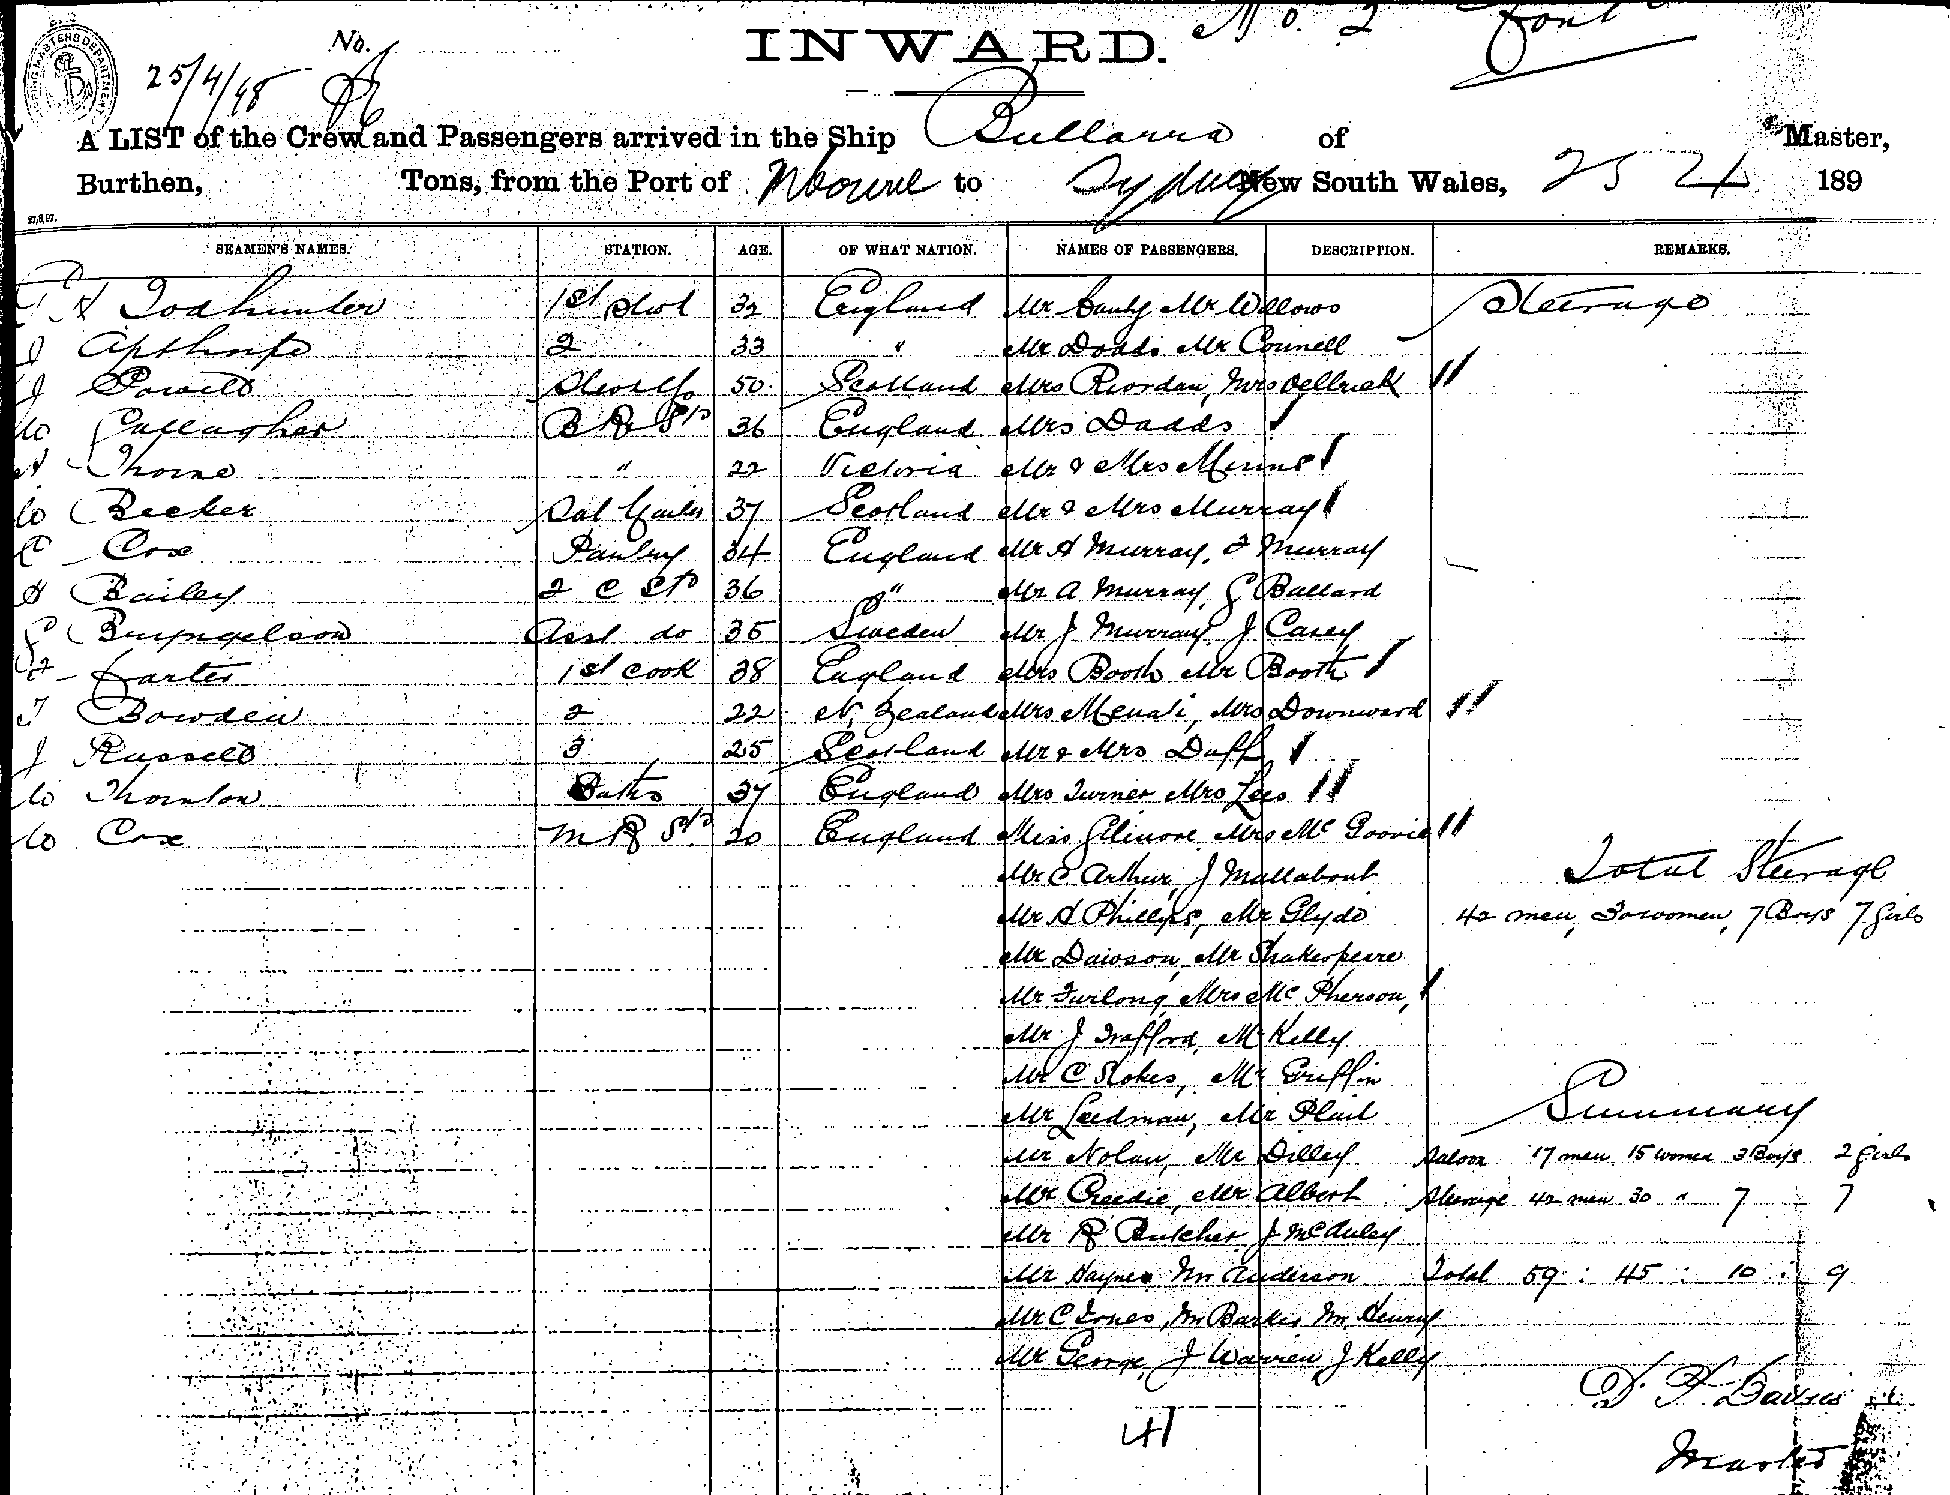 No. 2 front
INWARD.
No.
25/4/98
A LIST of the Crew and Passengers arrived in the Ship Bullarra of Master,
Burthen, Tons, from the Port of Mbourne to Sydney New South Wales, 25 4 189
27,8,97.
SEAMEN'S NAMES. STATION. AGE. OF WHAT NATION. NAMES OF PASSENGERS. DESCRIPTION. REMARKS.
T H Todhunter 1st Stwd 32 England Mr Canty Mr Willows Steerage
J Apthorpe 2 33 " Mr Dodds Mr Connell
J Powell 50 Scotland Mrs Riordan, Mrs Oellrich
W Gallagher B R Std 36 England Mrs Dadds
A Thorne " 22 Victoria Mr & Mrs Minns
W Becker 37 Scotland Mr & Mrs Murray
C Cox Pantry 34 England Mr H Murray, F Murray
H Bailey 2 C Std 36 " Mr A Murray, G Ballard
G Bryngelson Asst do 35 Sweden Mr J Murray J Casey
F Carter 1st Cook 38 England Mrs Booth Mr Booth
T Bowden 2 22 N. Zealand Mrs Menai, Mrs Downward
J Russell 3 25 Scotland Mr & Mrs Duff
W Thornton 37 England Mrs Turner Mrs Lees
W Cox M R Std 20 England Miss Gilmore, Mrs Mc Goovie
Mr C Arthur, J Mallabout Total Steerage
Mr H Phillips, Mr Glyde 42 men, 30 women, 7 Boys 7 Girls
Mr Dawson, Mr Shakespeare
Mr Furlong, Mrs Mc Pherson,
Mr J Trafford, M Kelly
Mr C Stokes, Mr Griffin
Mr Leedman, Mr Plail Summary
Mr Nolan, Mr Dilley Saloon 17 men 15 women 3 Boys 2 girls
Mr Creedie, Mr Albert Steerage 42 men 30 " 7 7
Mr R Butcher J McAuley
Mr Haynes Mr Anderson Total 59 : 45 : 10 : 9
Mr C Jones, Mr Barker Mr Henry
Mr George, J Warren J Kelly
41
Master